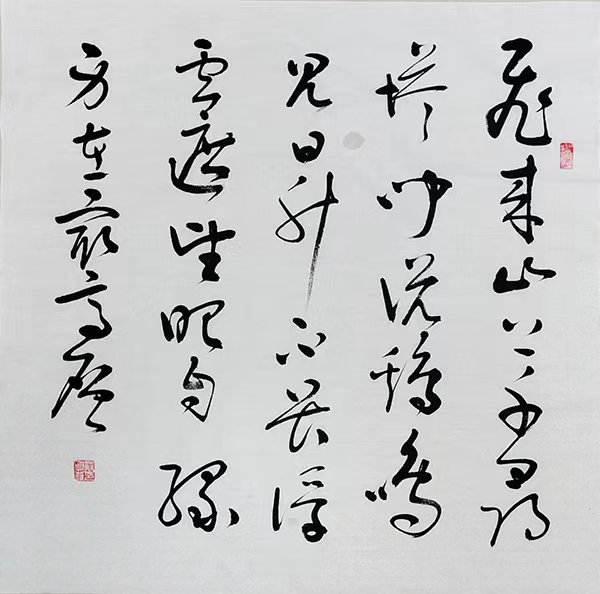 飛來山上千尋
塔聞說鷄鳴
見日升不畏浮
雲遮望眼自緣
身在最高層